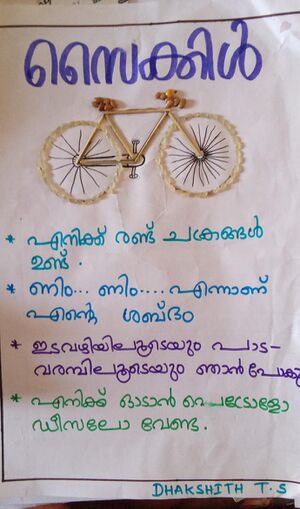 സൈക്കിൾ
* എനിക്ക് രണ്ട് ചക്രങ്ങൾ
ഉണ്ട്.
* ണിം... ണിം.... എന്നാണ്
എന്റെ ശബ്ദം
* ഇടവഴിയിലൂടെയും പാട-
വരമ്പിലൂടെയും ഞാൻ പോകും
* എനിക്ക് ഓടാൻ പെട്രോളോ
ഡീസലോ വേണ്ട.
DHAKSHITH T.S